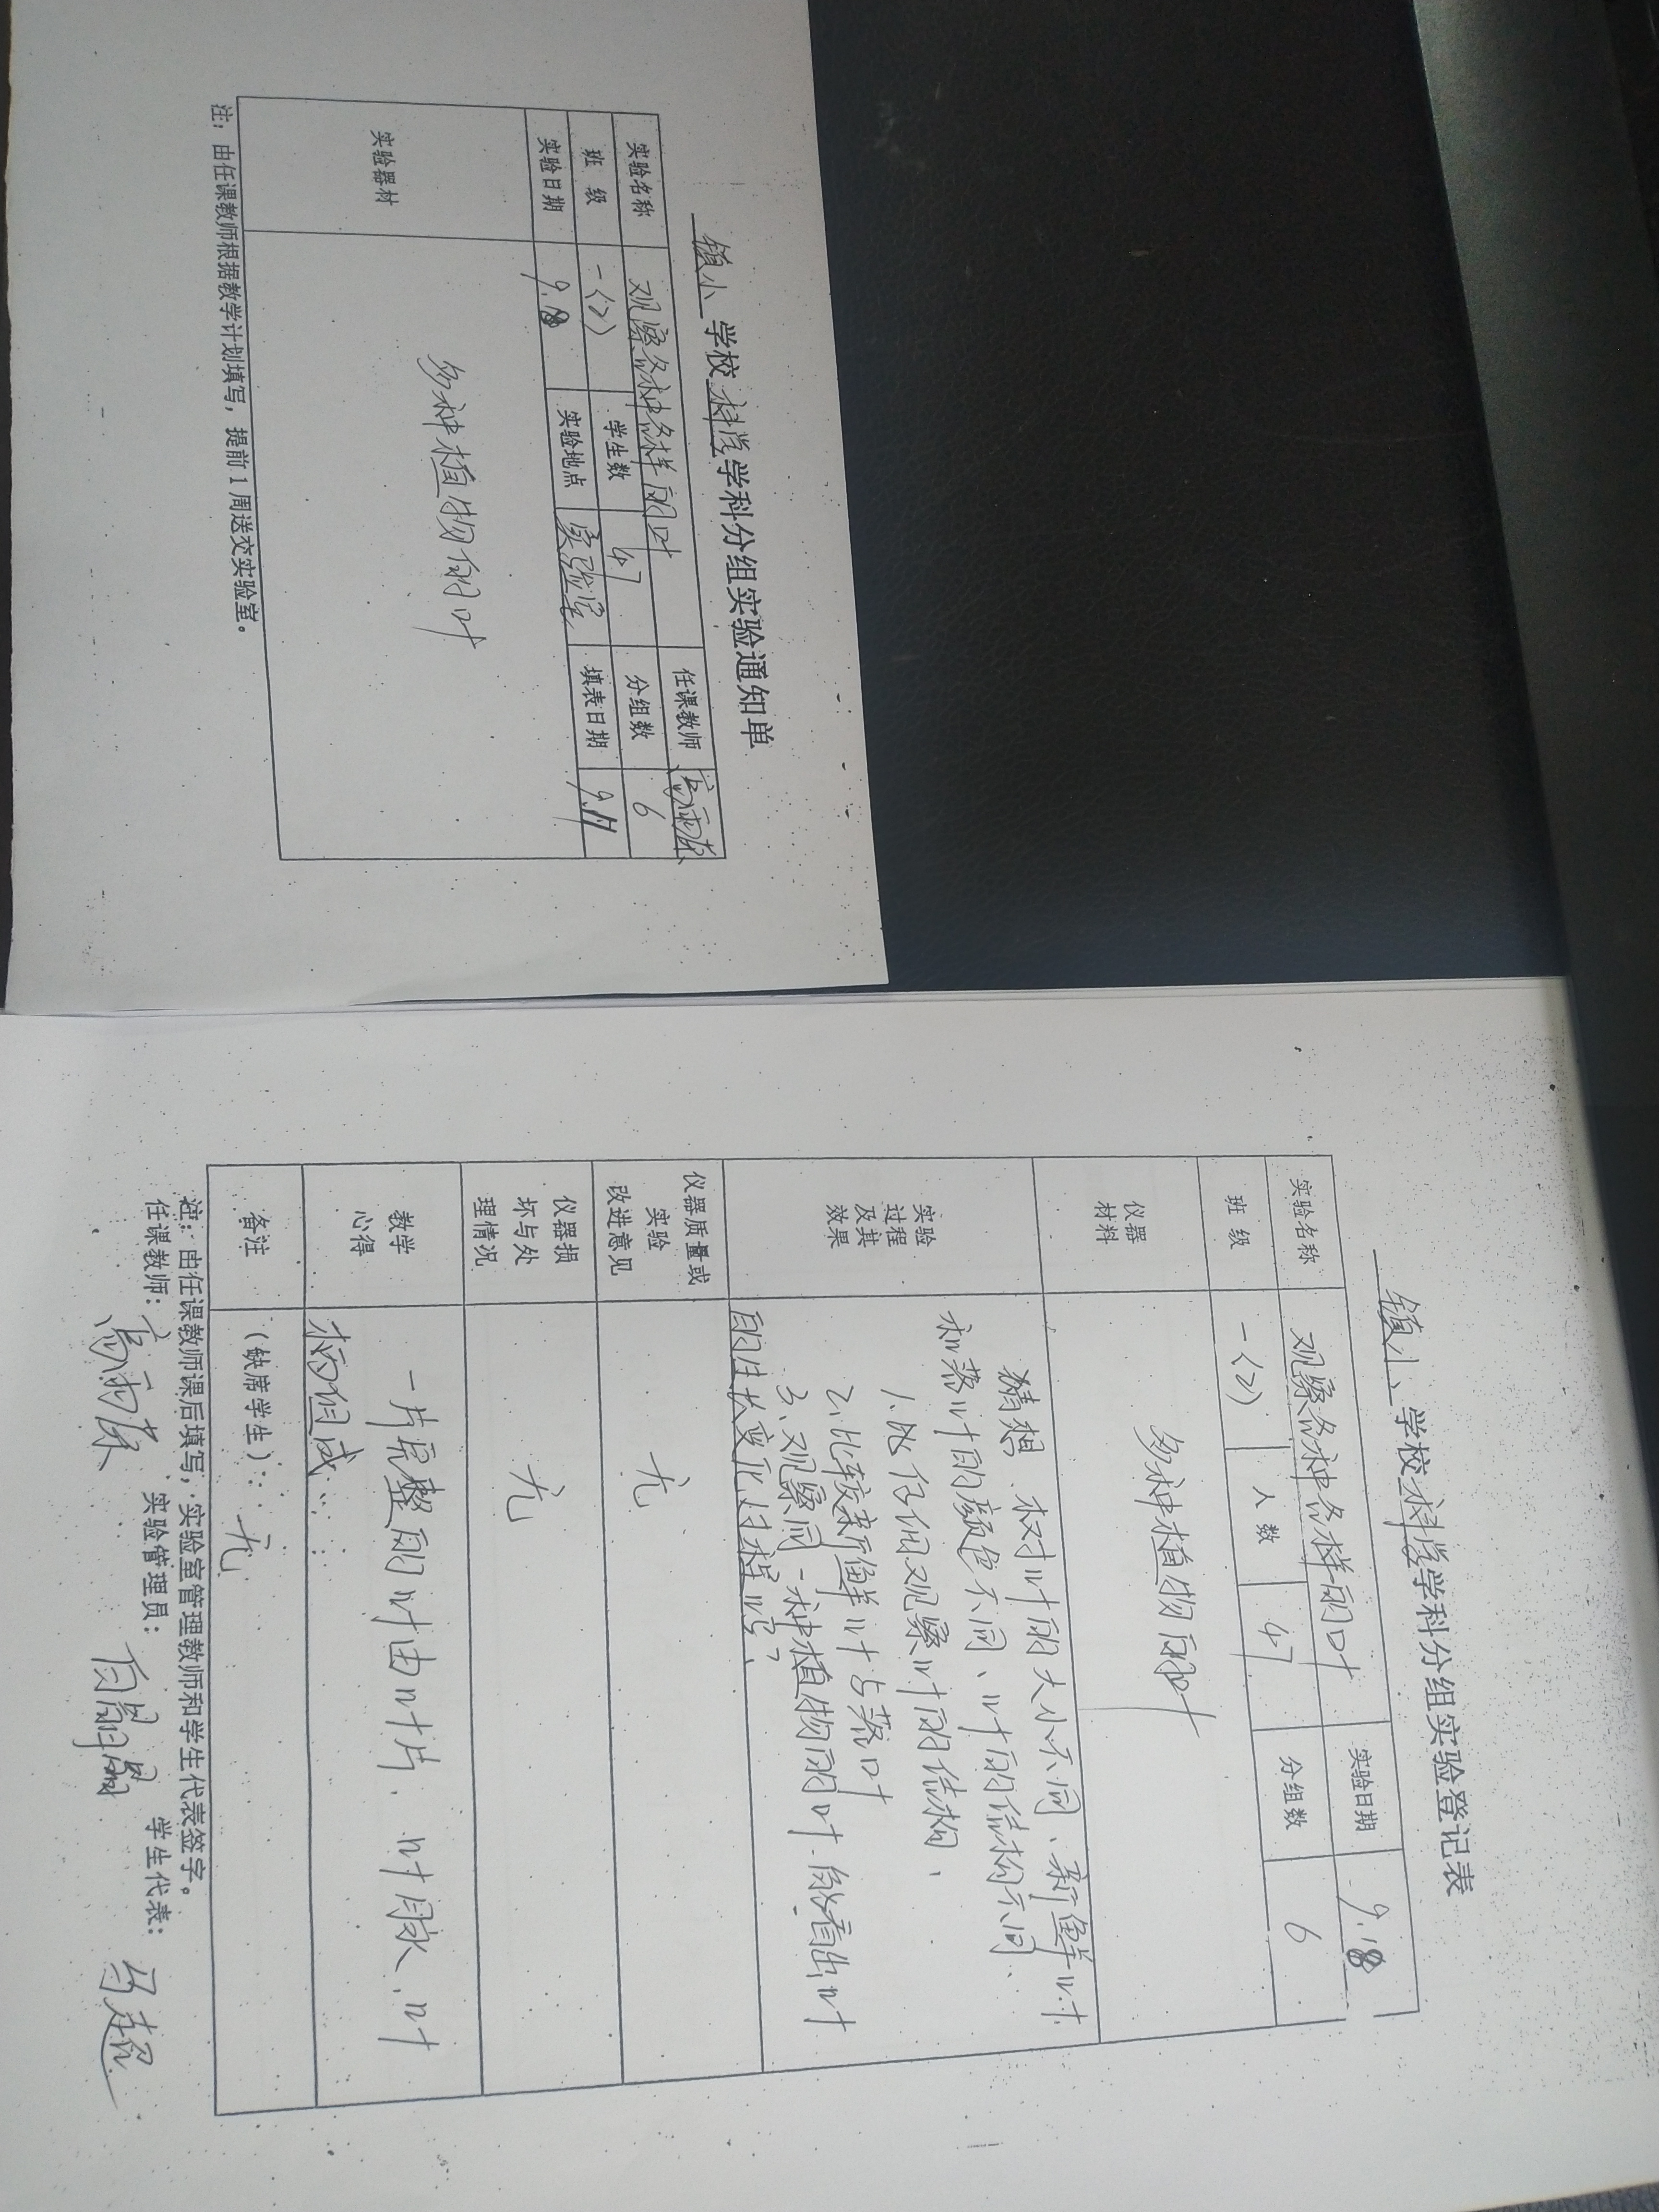 镇小 学校 科学 学科分组实验通知单
实验名称 观察各种各样的叶 任课教师
班 级 一(2) 学生数 47 分组数 6
实验日期 9.18 实验地点 实验室 填表日期 9.11
实验器材 多种植物的叶
注：由任课教师根据教学计划填写，提前1周送交实验室。
镇小 学校 科学 学科分组实验登记表
实验名称 观察各种各样的叶 实验日期 9.18
班 级 一(2) 人 数 47 分组数 6
仪器
材料
多种植物的叶
实验
过程
及其
效果
猜想、树叶的大小不同、新鲜叶
和落叶的颜色不同、叶的结构不同、
1.仔细观察叶的结构、
2.比较新鲜叶与落叶
3.观察同一种植物的叶.能看出叶
的生长变化过程吗?
仪器质量或
实验
改进意见
无
仪器损
坏与处
理情况
无
教学
心得
一片完整的叶由叶片、叶脉、叶
柄组成
备注
(缺席学生)： 无
注：由任课教师课后填写，实验室管理教师和学生代表签字。
任课教师： 实验管理员： 学生代表： 马超